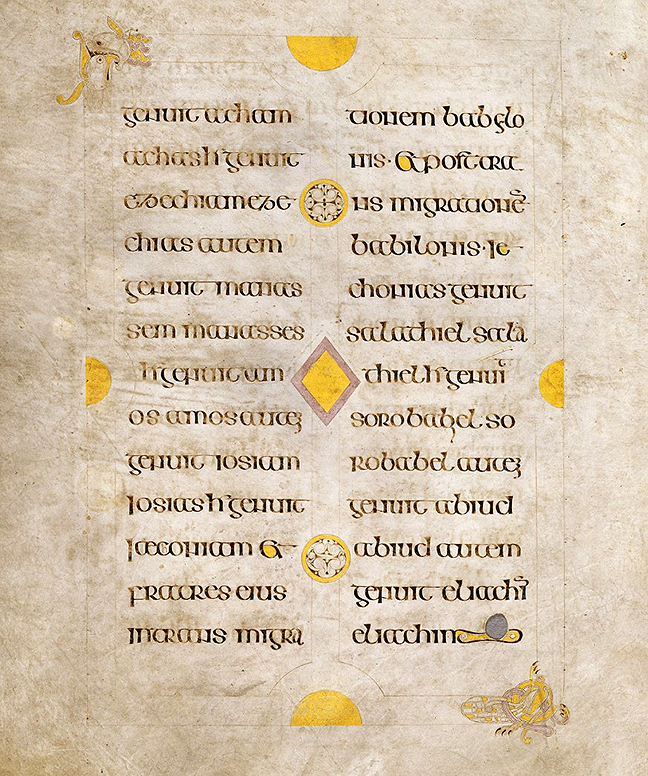 genuit acham
achas h̓ genuit
ezechiam eze
chias autem
genuit manas
sem manasses
h̓ genuit am
os amos auteʒ
genuit iosiam
Iosias h̓ genuit
Iaeconiam &
fratres eius
intrans migra
tionem babylo
nis · & post tra
ns migrationē
babilonis · Ie
chonias genuit
salathiel sala
thiel h̓ genuit
sorobabel so
robabel auteʒ
genuit abiud
abiud autem
genuit eliachī
eliachin